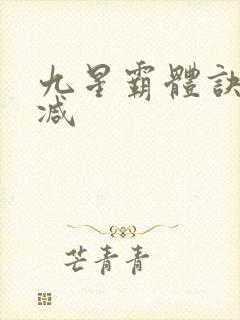 九星霸體訣
减
芒青青